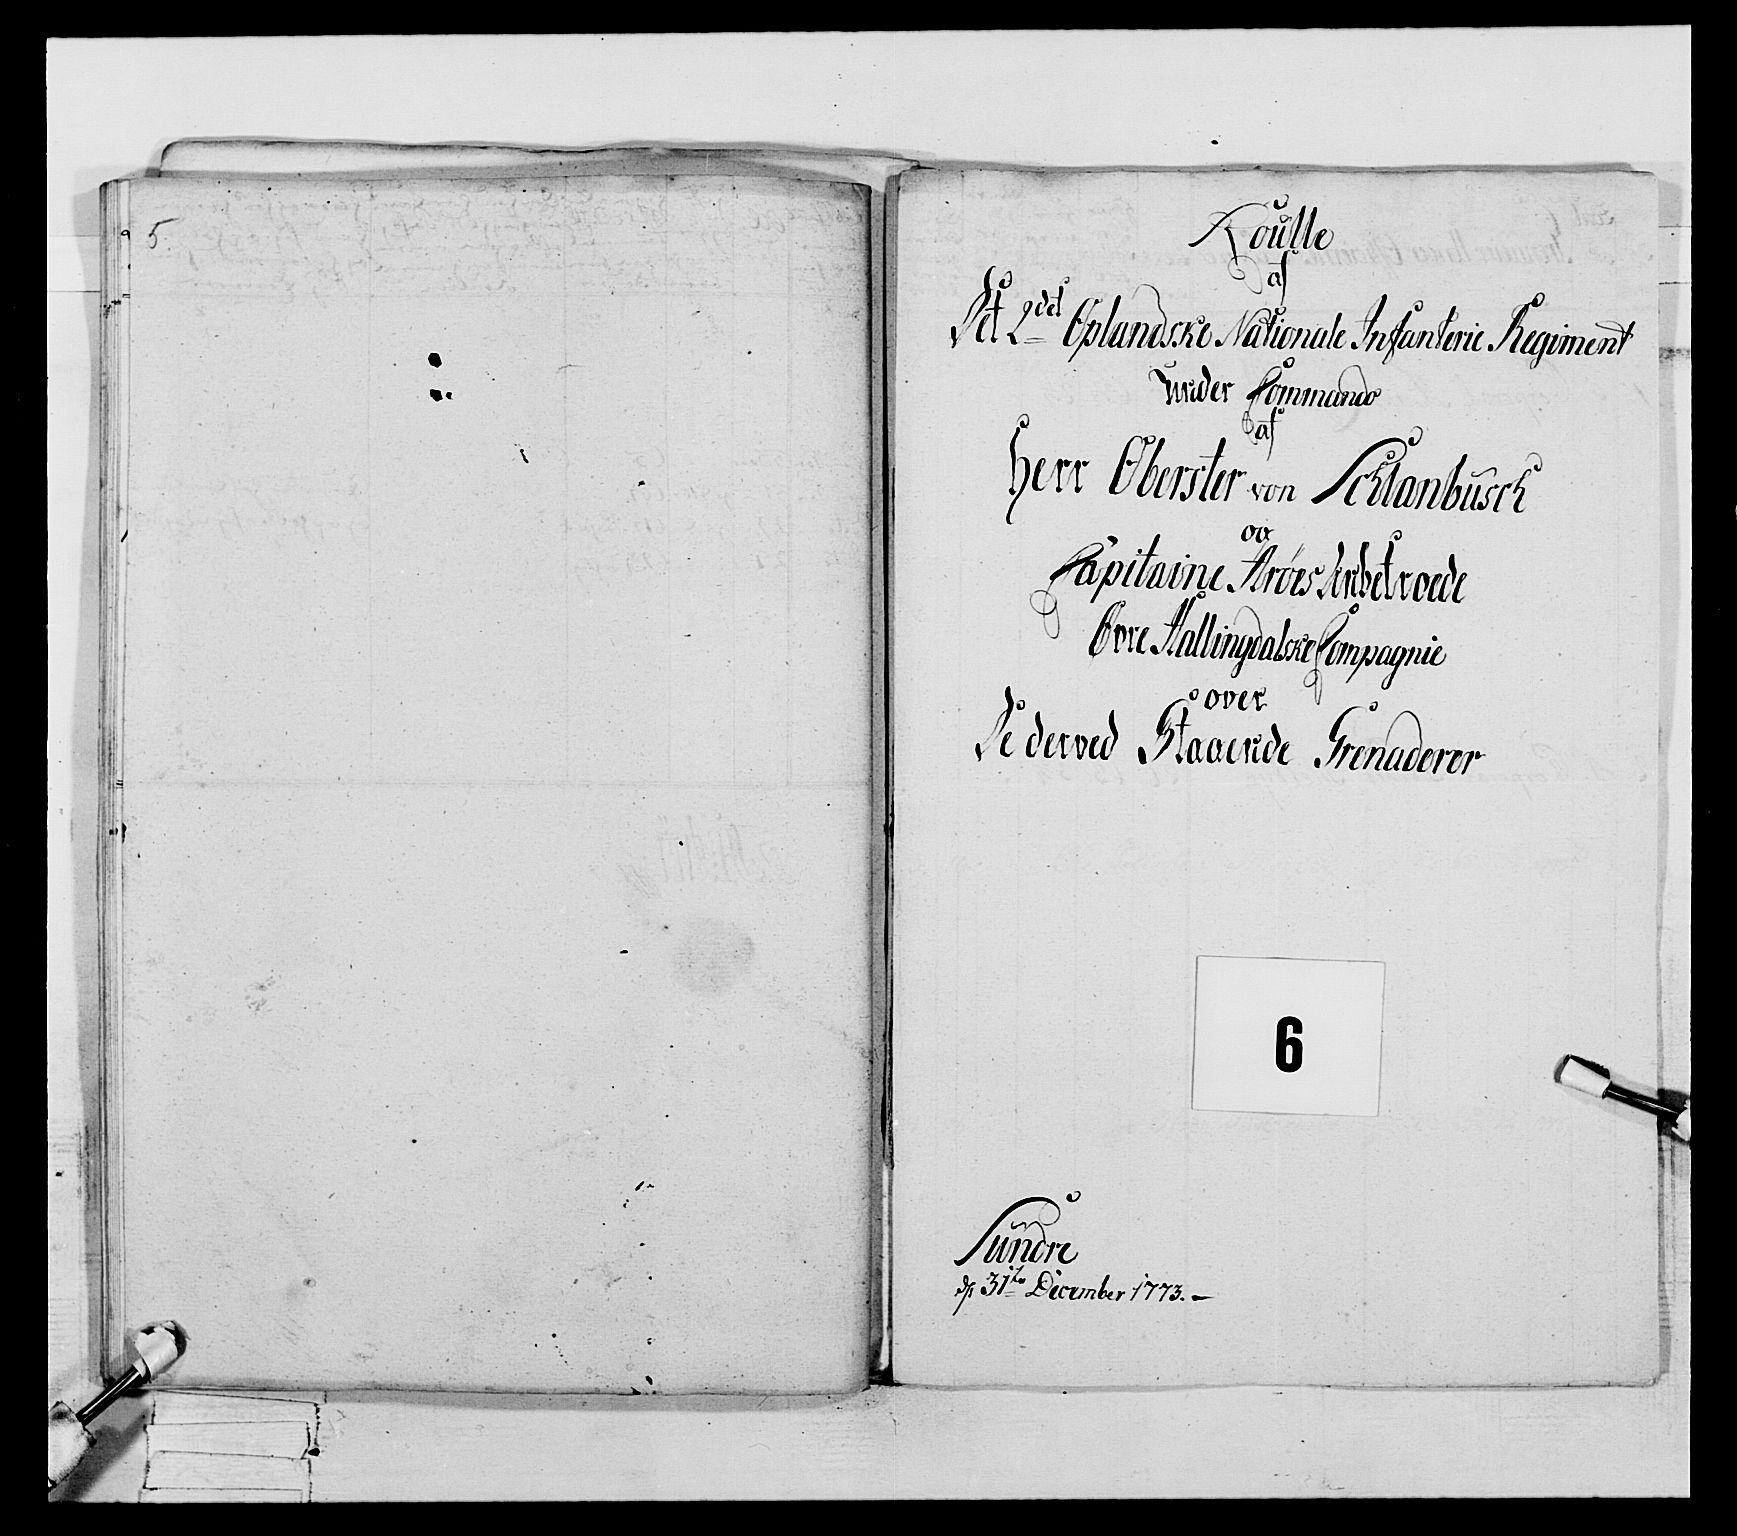 5.
Roulle
af
Det 2det Oplandske Nationale Infanterie Regiment
under Commando
af
Herr Oberster von Schlanbusch
og
Capitaine Arøes Anbetroede
Øvre Hallingdalske Compagnie
over
De derved Staaende Grenaderer
6
Sundre
d. 31te December 1773.